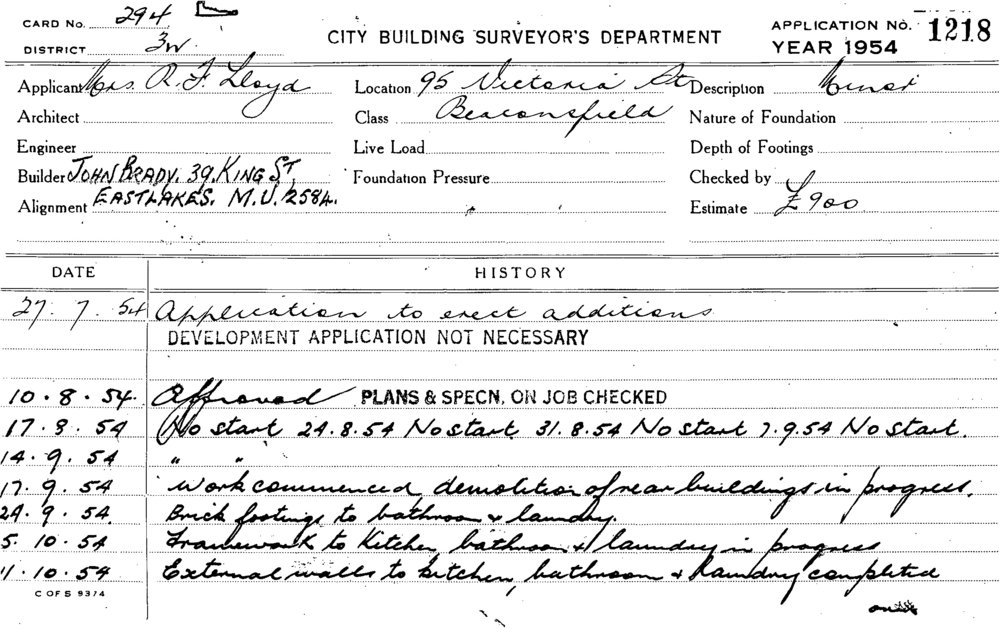 CARD No. 294
DISTRICT 3W.
CITY BUILDING SURVEYOR'S DEPARTMENT
APPLICATION No. 1218
YEAR 1954
Applicant Mrs. R. F. Lloyd Location 95 Victoria St Description Minor
Architect Class Beaconsfield Nature of Foundation
Engineer Live Load Depth of Footings
Builder JOHN BRADY, 39, KING ST, Foundation Pressure Checked by
Alignment EASTLAKES. M.U. 2584. Estimate £900
DATE HISTORY
27. 7. 54 Application to erect additions
DEVELOPMENT APPLICATION NOT NECESSARY
10. 8. 54. Approved PLANS & SPECN. ON JOB CHECKED
17. 8. 54 No start 24.8.54 No start 31.8.54 No start 7.9.54 No start.
14. 9. 54 " "
17. 9. 54 Work commenced, demolition of rear buildings in progress.
24. 9. 54. Brick footings to bathroom & laundry.
5. 10. 54 Framework to Kitchen, bathroom & laundry in progress
11. 10. 54 External walls to kitchen, bathroom & laundry completed
C OF S 93/4